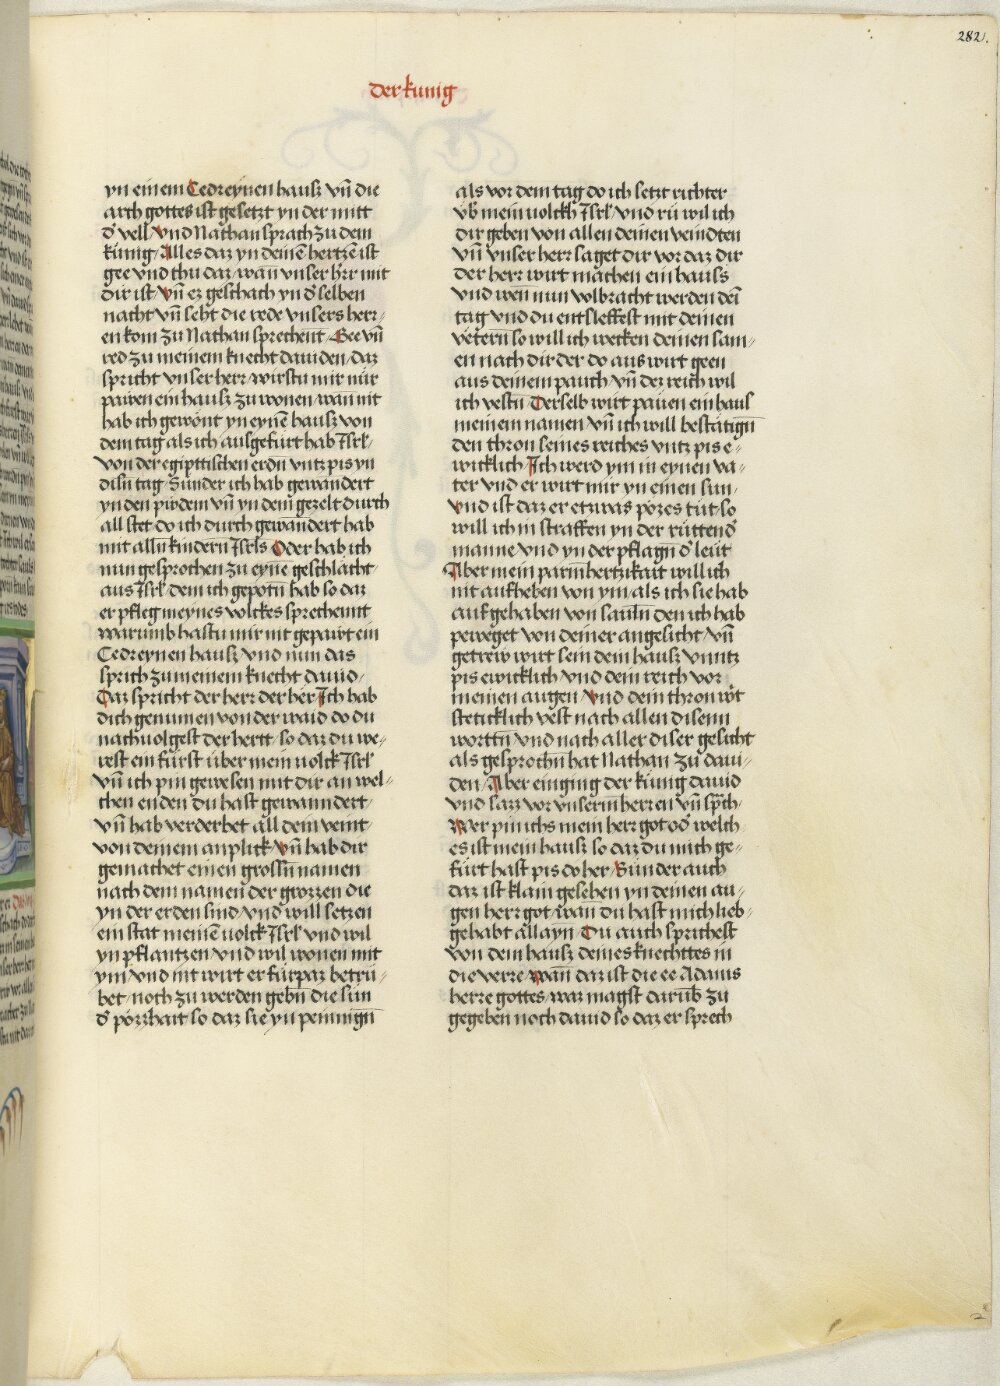 282.
der kunig
yn einem Cedreynen hausz vn̄ die
arch gottes ist gesetzt yn der mitt
d̕ vell/ vnd Nathan sprach zu dem
kunig/ Alles daz yn deinē hertzē ist
gee vnd thu daz/ wan vnser h̄rr mit
dir ist/ vn̄ ez geschach yn d̕ selben
nacht vn̄ seht die rede vnsers herr⸗
en kom zu Nathan sprechent/ Gee vn̄
red zu meinem knecht dauiden/ daz
spricht vnser herr/ wirstu mir nür
pawen ein hausz zu wonen/ wan nit
hab ich gewont yn eynē hausz von
dem tag als ich ausgefurt hab Isrl̕
von der egipttischen erdn̄ vntz pis yn
disn̄ tag/ Sunder ich hab gewandert
yn den pirdem vn̄ yn dem gezelt durch
all stet do ich durch gewandert hab
mit alln̄ kindern Isrls Oder hab ich
nun gesprochen zu eyne geschlächt⸗
aus Isrl̕ dem ich gepotn̄ hab so daz
er pfleg meynes volckes sprechennt
warumb hastu mir nit gepawt ein
Cedreynen hausz/ vnd nun das
sprich zu meinem knecht dauid/
Daz spricht der herr der her Ich hab
dich genumen von der waid do du
nachuolgest der hertt/ so daz du we⸗
rest ein fürst über mein uolck Isrl̕
vn̄ ich pin gewesen mit dir an wel⸗
chen enden du hast gewanndert/
vn̄ hab verderbet all dem veint/
von deinem anplick/ vn̄ hab dir
gemachet einen grossn̄ namen
nach dem namen der grozzen die
yn der erden sind/ vnd will setzen
ein stat meinē uolck Isrl̕ vnd wil
yn pflantzen/ vnd wil wonen mit
ym/ vnd nit wirt er fürpaz betrü⸗
bet/ noch zu werden gebn̄ die sün
d̕ pözzhait so daz sie yn peinnign̄
als vor dem tag do ich setzt richter
vb̕ mein uolckh Isrl̕/ vnd rü wil ich
dir geben von allen deinen veindten
vn̄ vnser herr saget dir vor daz dir
der herr wirt machen ein hauss
vnd wen nun volbracht werden dein̄
tag vnd du entsleffest mit deinen
vetern so will ich wecken deinen sam⸗
en nach dir der do aus wirt geen
aus deinem pauch vn̄ dez reich wil
ich vestn̄/ Derselb wirt pauen ein haus
meinem namen vn̄ ich will bestätign̄
den thron seines reiches vntz pis e⸗
wicklich Ich werd ym in eynen va⸗
ter vnd er wirt mir yn einen sun/
vnd ist daz er etwas pözes tüt/ so
will ich in straffen yn der rüttend̕
manne/ vnd yn der pflagn̄ d̕ leüt
Aber mein parmhertzikait will ich
nit aufheben von ym als ich sie hab
aufgehaben von sauln̄ den ich hab
peweget von deiner angesicht/ vn̄
getrew wirt sein dem hausz vnntz
pis ewicklich/ vnd dein reich vor
meinen augen/ vnd dein thron w̕t
stetticklich vest nach allen disenn
worttn̄/ vnd nach aller diser gesicht
als gesprochn̄ hat Nathan zu daui⸗
den/ Aber einging der kunig dauid
vnd sazz vor vnserm herren vn̄ sp̄ch⸗
Wer pin ichs mein herr got od̕ welch⸗
es ist mein hausz so daz du mich ge⸗
fürt hast pis do her/ Sunder auch
daz ist klain gesehen yn deinen au⸗
gen herr got/ wan du hast mich lieb⸗
gehabt allayn/ Du auch sprichest
von dem hausz deines knechttes in
die verre/ wan̄ daz ist die ee Adams
herre gottes/ waz magst darüb̄ zu
gegeben noch dauid so daz er sprech